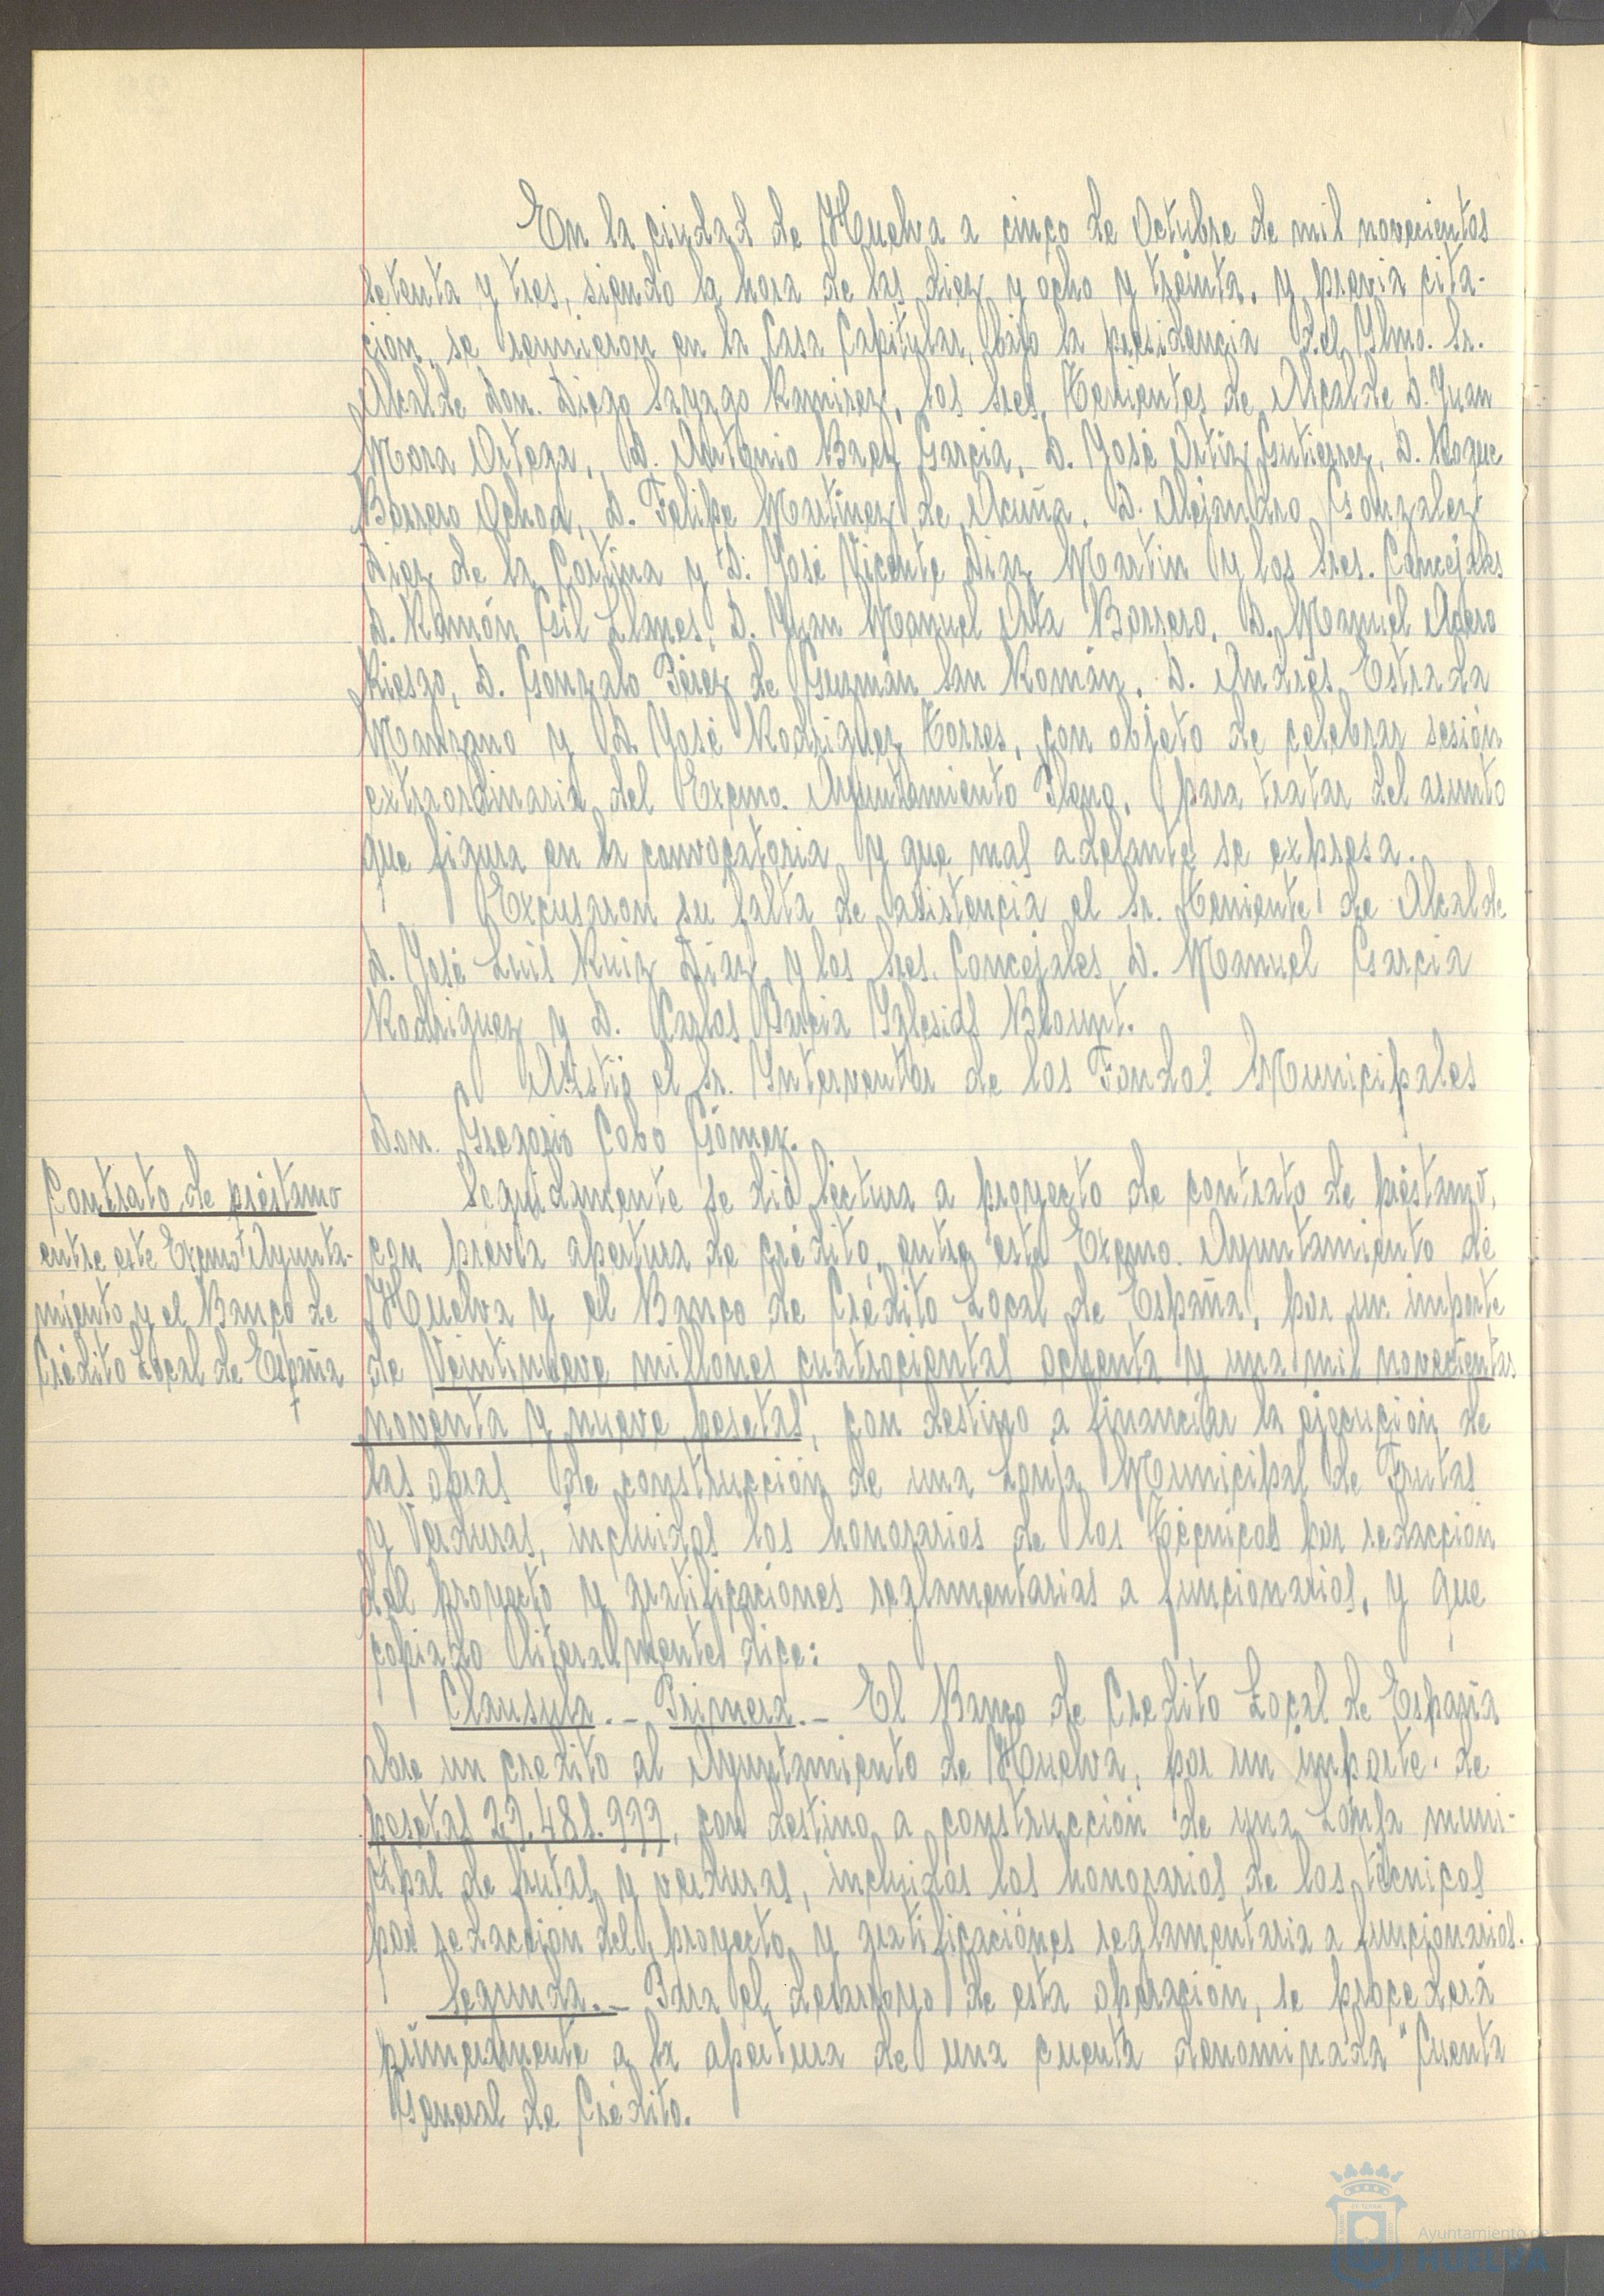 En la ciudad de Huelva a cinco de Octubre de mil novecientos
setenta y tres, siendo la hora de las diez y ocho y treinta, y previa cita-
ción, se reunieron en la Casa Capitular, bajo la presidencia del Ylmo. Sr.
Alcalde Don. Diego Sayago Ramirez, los Sres. Tenientes de Alcalde D. Juan
Mora Ortega, D. Antonio Baez Garcia, D. José Ortiz Gutierrez, D. Roque
Borrero Ochoa, D. Felipe Martinez de Acuña, D. Alejandro Gonzalez
Diez de la Cortina y D. José Vicente Diaz Martin y los Sres. Concejales
D. Ramón Gil Llanes, D. Juan Manuel Orta Borrero, D. Manuel Agero
Riesgo, D. Gonzalo Pérez de Guzmán San Román, D. Andrés Estrada
Manzano y D. José Rodriguez Torres, con objeto de celebrar sesión
extraordinaria del Excmo. Ayuntamiento Pleno, para tratar del asunto
que figura en la convocatoria y que mas adelante se expresa.
Excusaron su falta de asistencia el Sr. Teniente de Alcalde
D. José Luis Ruiz Diaz y los Sres. Concejales D. Manuel Garcia
Rodriguez y D. Carlos Garcia Yglesias Blount.
Asistió el Sr. Ynterventor de los Fondos Municipales
Don. Gregorio Cobo Gómez.
Contrato de préstamo
entre este Excmo Ayunta-
miento y el Banco de
Crédito Local de España
Seguidamente se dió lectura a proyecto de contrato de préstamo,
con previa apertura de crédito, entre este Excmo. Ayuntamiento de
Huelva y el Banco de Crédito Local de España, por un importe
de Veintinueve millones cuatrocientas ochenta y una mil novecientas
noventa y nueve pesetas, con destino a financiar la ejecución de
las obras de construcción de una Lonja Municipal de Frutas
y Verduras, incluidos los honorarios de los Técnicos por redacción
del proyecto y gratificaciones reglamentarias a funcionarios, y que
copiado literalmente dice:
Clausula.- Primera.- El Banco de Credito Local de España
abre un credito al Ayuntamiento de Huelva, por un importe de
pesetas 29.481.999, con destino a construcción de una Lonja muni-
cipal de frutas y verduras, incluidos los honorarios de los técnicos
por redacción del proyecto y gratificaciones reglamentaria a funcionarios.
Segunda.- Para el desarroyo de esta operación, se procederá
primeramente a la apertura de una cuenta denominada "Cuenta
General de Crédito.
Ayuntamiento de
HUELVA